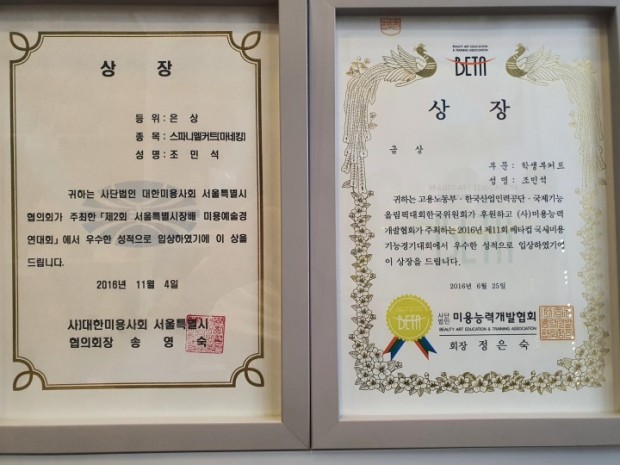 상 장
등 위 : 은 상
종 목 : 스파니엘커트(마네킹)
성 명 : 조 민 석
귀하는 사단법인 대한미용사회 서울특별시
협의회가 주최한 「제2회 서울특별시장배 미용예술경
연대회」에서 우수한 성적으로 입상하였기에 이 상을
드립니다.
2016년 11월 4일
사)대한미용사회 서울특별시
협의회장 송 영 숙
BEAUTY ART EDUCATION
& TRAINING ASSOCIATION
BETA
상 장
금 상
부 문 : 학생부커트
성 명 : 조민석
귀하는 고용노동부 · 한국산업인력공단 · 국제기능
올림픽대회한국위원회가 후원하고 (사)미용능력
개발협회가 주최하는 2016년 제11회 베타컵 국제미용
기능경기대회에서 우수한 성적으로 입상하였기에
이 상장을 드립니다.
2016년 6월 25일
BETA
사단법인 미용능력개발협회
BEAUTY ART EDUCATION & TRAINING ASSOCIATION
회장 정 은 숙